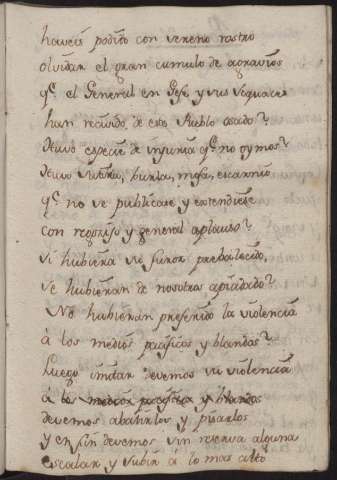 haveis podido con sereno rostro
olvidar el gran cumulo de agravios
q.e el General en Gefe, y sus sequaces
han de este Pueblo osado?
Huvo especie de injuria q.e no oymos?
Huvo burla, mofa, escarnio
q.e no se publicase y extendiese
con regozijo y general aplauso?
Si hubiera su furor prebalecido,
se hubieran de nosotros apiadado?
No hubieran preferido la violencia
á los medios pacificos y blandos?
Luego imitar devemos su violencia
á los medios pacificos y blandos
devemos abatirlos y pisarlos
y en fin devemos sin reserva alguna
escalar y subir á lo mas alto